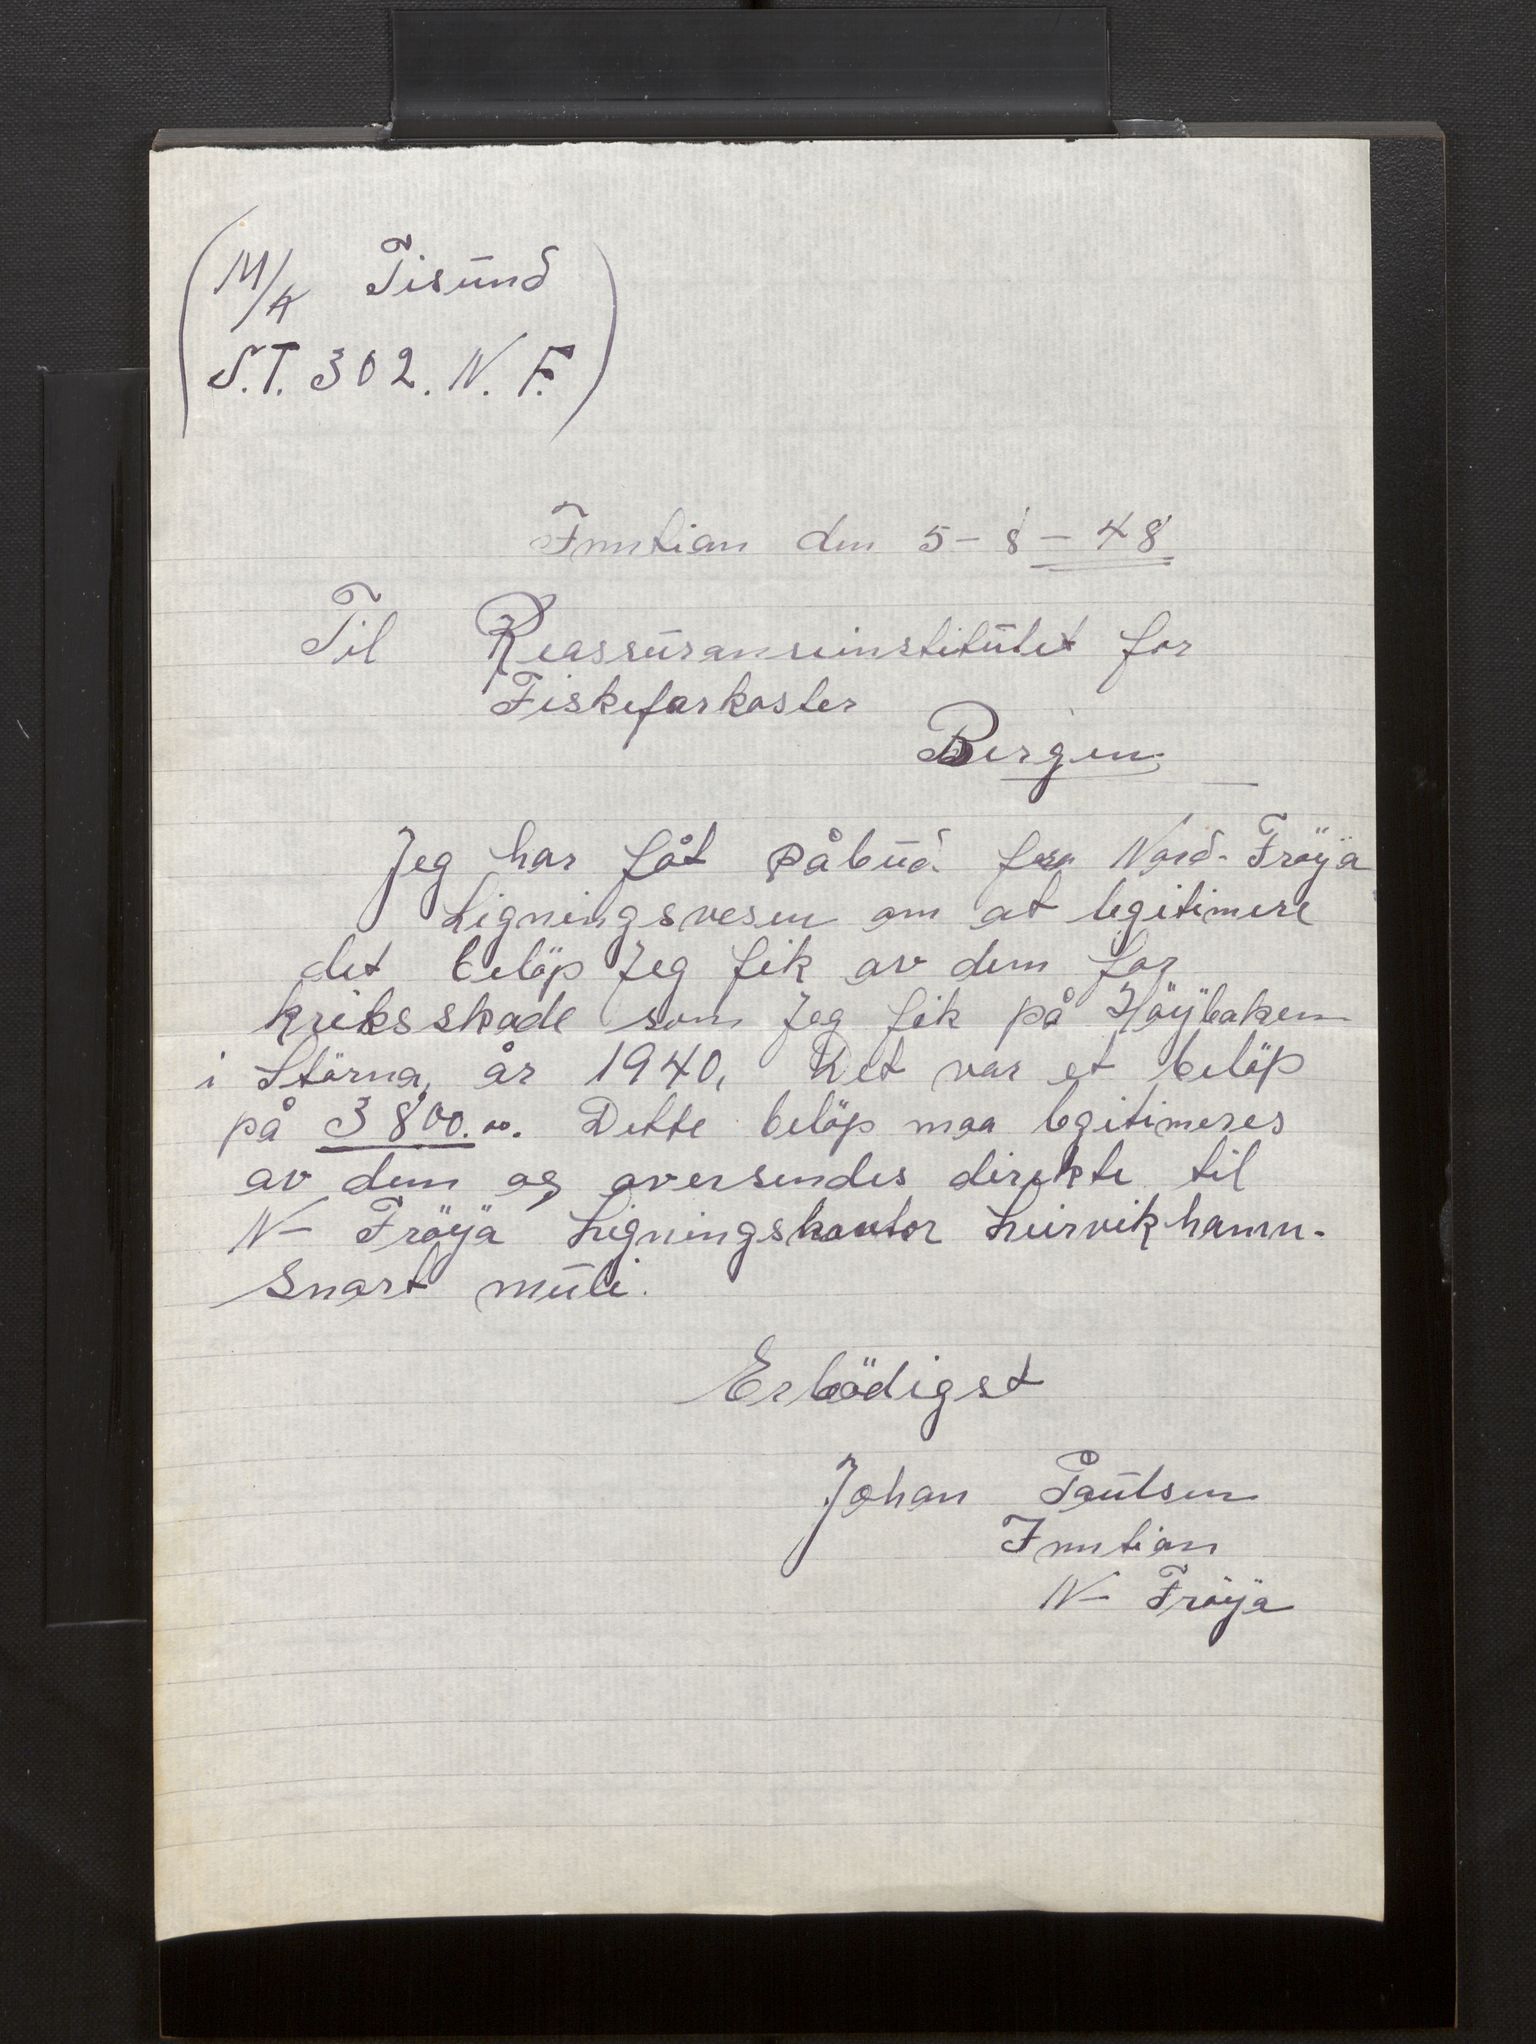 M/K Tisund
S.T. 302. N. F.
Inntian den 5-8-48
Til Reassuranseinstitutet for
Fiskefarkoster
Bergen
Jeg har fåt påbud fra Nord-Fröya
Ligningsvesen om at legitimere
det belöp Jeg fik av dem for
kriksskade som Jeg fik på Höybakken
i Störna, år 1940, Det var et belöp
på 3800.00. Dette belöp maa legitimeres
av dem og oversendes direkte til
N- Fröya Ligningskontor Leirvikhamn.
Snart muli.
Erbödigst
Johan Paulsen
Inntian
N- Fröya